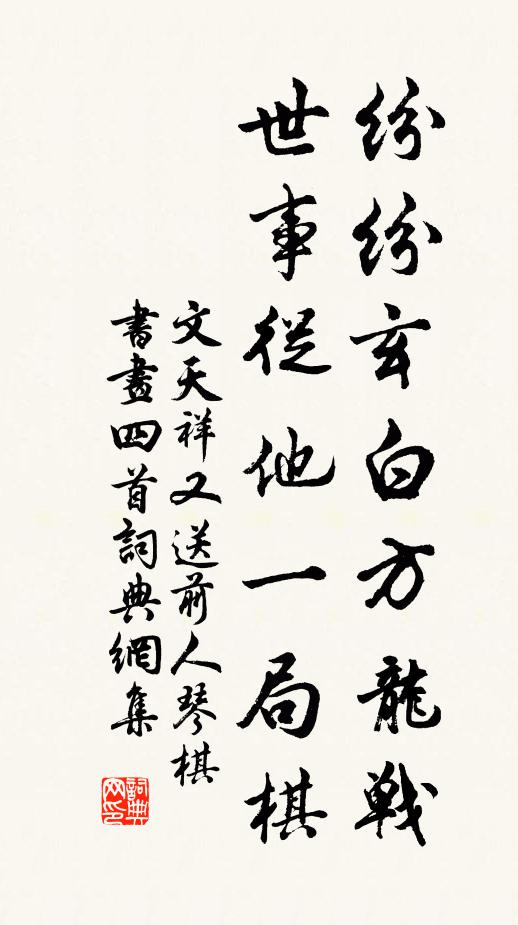 紛紛玄白方龍戰
世事從他一局棋
文天祥又送前人琴棋
書畫四首詞典網集
詞典
网印